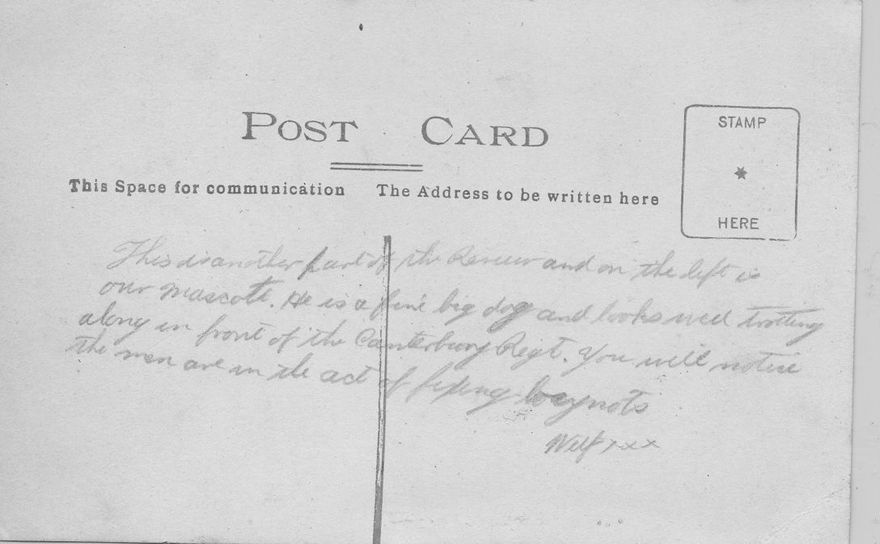 POST CARD
This Space for communication The Address to be written here
STAMP
*
HERE
This is another part of the Review and on the left is
our mascote. He is a fine big dog and looks well trotting
along in front of the Canterbury Regt. You will notice
the men are in the act of fixing baynots
Wilf xxx